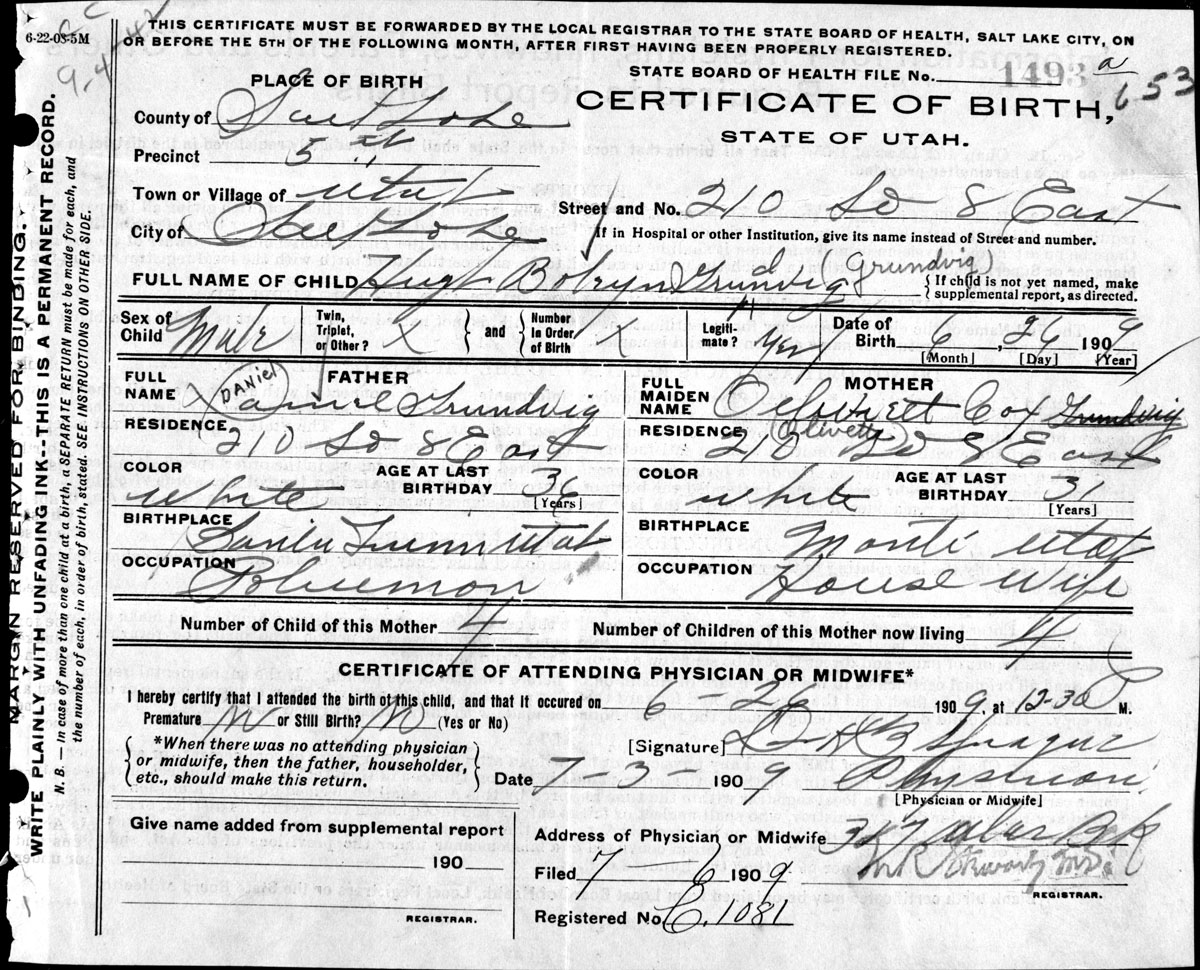 6-22-08-5M
THIS CERTIFICATE MUST BE FORWARDED BY THE LOCAL REGISTRAR TO THE STATE BOARD OF HEALTH, SALT LAKE CITY, ON
OR BEFORE THE 5TH OF THE FOLLOWING MONTH, AFTER FIRST HAVING BEEN PROPERLY REGISTERED.
PLACE OF BIRTH
STATE BOARD OF HEALTH FILE No. 1493 a 653
CERTIFICATE OF BIRTH,
STATE OF UTAH.
County of Salt Lake
Precinct 5th
Town or Village of Utah
Street and No. 210 So 8 East
City of Salt Lake
If in Hospital or other Institution, give its name instead of Street and number.
FULL NAME OF CHILD Hugh Grundvig (Grundvig)
{ If child is not yet named, make supplemental report, as directed.
Sex of Child Male
Twin, Triplet, or Other?
and
Number in Order of Birth
Legitimate? Yes
Date of Birth 6, 26 1909
[Month] [Day] [Year]
FATHER
FULL NAME (DANIEL) Grundvig
RESIDENCE 210 So 8 East
COLOR White
AGE AT LAST BIRTHDAY 36 [Years]
BIRTHPLACE Utah
OCCUPATION
MOTHER
FULL MAIDEN NAME Cox Grundvig
(Olivett)
RESIDENCE 210 So 8 East
COLOR White
AGE AT LAST BIRTHDAY 31 [Years]
BIRTHPLACE Manti Utah
OCCUPATION House Wife
Number of Child of this Mother 4
Number of Children of this Mother now living 4
CERTIFICATE OF ATTENDING PHYSICIAN OR MIDWIFE*
I hereby certify that I attended the birth of this child, and that it occured on 6-26 1909, at 12-30 P M.
Premature N or Still Birth? N (Yes or No)
{ *When there was no attending physician or midwife, then the father, householder, etc., should make this return. }
[Signature] Sprague
Date 7 3 1909 Physician
[Physician or Midwife]
Give name added from supplemental report
190
REGISTRAR.
Address of Physician or Midwife
Filed 7-6 1909
REGISTRAR.
Registered No. C. 1081
MARGIN RESERVED FOR BINDING.
WRITE PLAINLY WITH UNFADING INK—THIS IS A PERMANENT RECORD.
N. B. — In case of more than one child at a birth, a SEPARATE RETURN must be made for each, and
the number of each, in order of birth, stated. SEE INSTRUCTIONS ON OTHER SIDE.